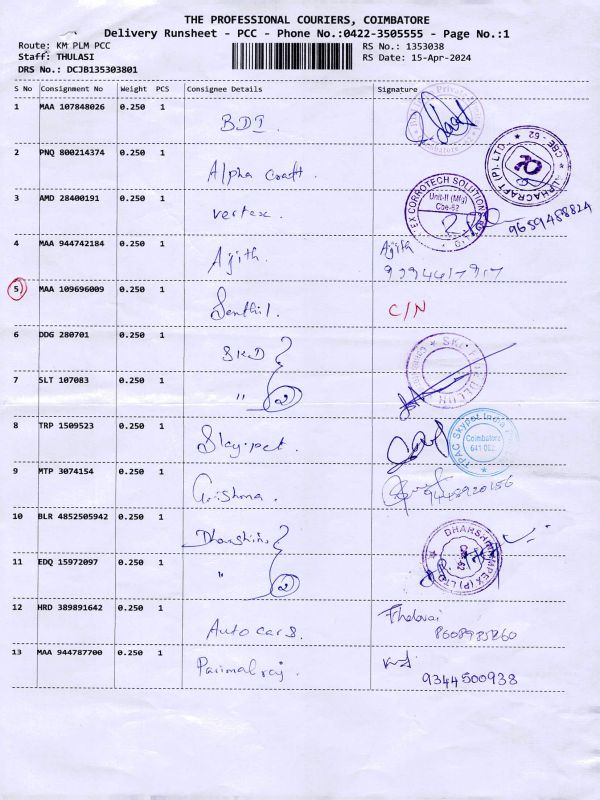 THE PROFESSIONAL COURIERS, COIMBATORE
Delivery Runsheet - PCC - Phone No.:0422-3505555 - Page No.:1
Route: KM PLM PCC RS No.: 1353038
Staff: THULASI RS Date: 15-Apr-2024
DRS No.: DCJB135303801
S No Consignment No Weight PCS Consignee Details Signature
1 MAA 107848026 0.250 1 BDI
2 PNQ 800214374 0.250 1 Alpha craft.
CBE - 62 ALPHACRAFT (P) LTD.
3 AMD 28400191 0.250 1 Vertex.
EX CORROTECH SOLUTION Unit-II (Mfg) Cbe-62
9659488824
4 MAA 944742184 0.250 1 Ajith. Ajith
5 MAA 109696009 0.250 1 Senthil. C/N
6 DDG 280701 0.250 1 SKD
7 SLT 107083 0.250 1 " 2
8 TRP 1509523 0.250 1 Skypet.
Skypet India Coimbatore
9 MTP 3074154 0.250 1 Grishma.
10 BLR 4852505942 0.250 1 Dharshini
11 EDQ 15972097 0.250 1 " 2
Cbe-62
12 HRD 389891642 0.250 1 Auto cars.
13 MAA 944787700 0.250 1 Parimalraj.
9344500938